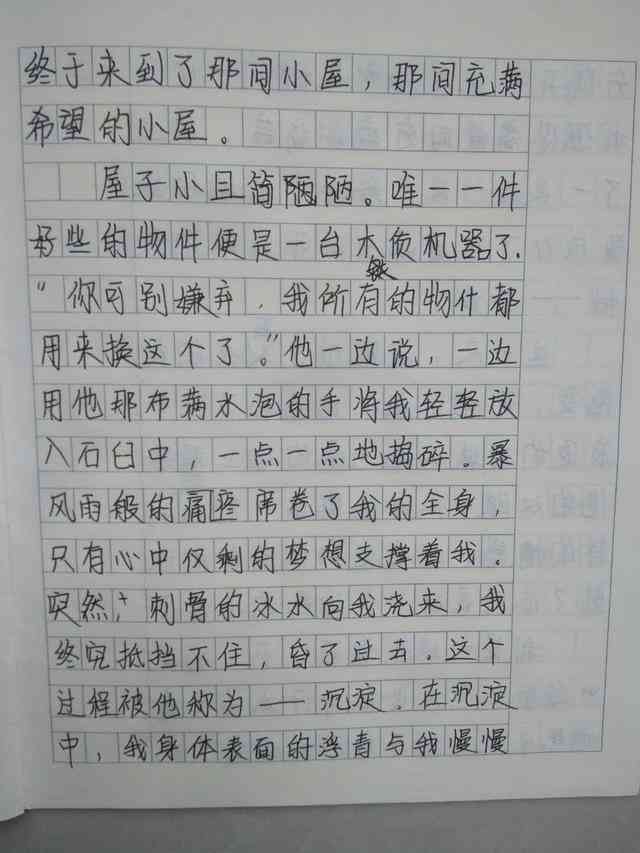 终于来到了那间小屋，那间充满
希望的小屋。
屋子小且简陋陋。唯一一件
好些的物件便是一台木质机器了.
“你可别嫌弃，我所有的物什都
用来换这个了。”他一边说，一边
用他那布满水泡的手将我轻轻放
入石臼中，一点一点地捣碎。暴
风雨般的痛席卷了我的全身，
只有心中仅剩的梦想支撑着我。
突然，刺骨的冰水向我浇来，我
终究抵挡不住，昏了过去．这个
过程被他称为——沉淀．在沉淀
中，我身体表面的浮青与我慢慢